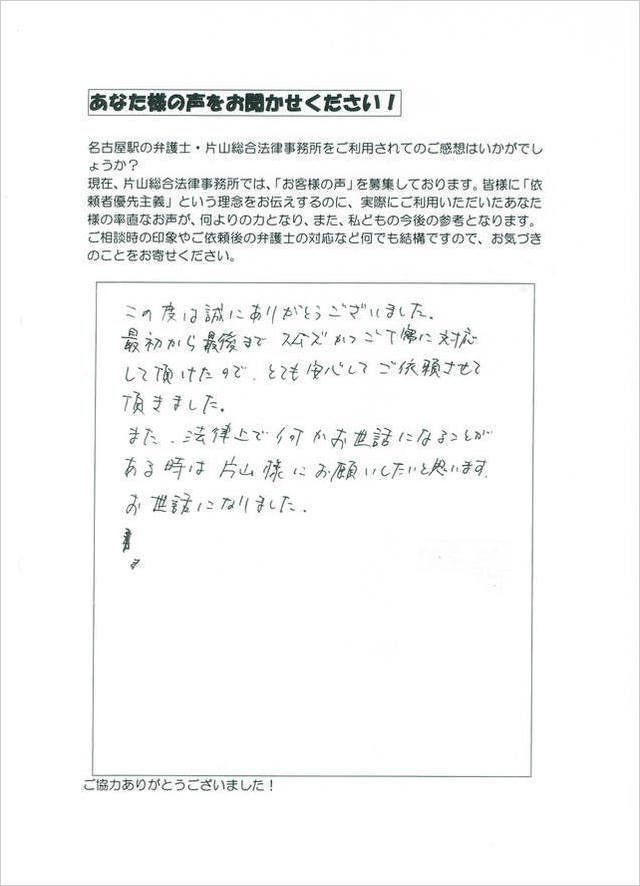 あなた様の声をお聞かせください！
名古屋駅の弁護士・片山総合法律事務所をご利用されてのご感想はいかがでし
ょうか？
現在、片山総合法律事務所では、「お客様の声」を募集しております。皆様に「依
頼者優先主義」という理念をお伝えするのに、実際にご利用いただいたあなた
様の率直なお声が、何よりの力となり、また、私どもの今後の参考となります。
ご相談時の印象やご依頼後の弁護士の対応など何でも結構ですので、お気づき
のことをお寄せください。
この度は誠にありがとうございました。
最初から最後まで スムーズかつご丁寧に対応
して頂けたので、とても安心してご依頼させて
頂きました。
また、法律上で何かお世話になることが
ある時は片山様にお願いしたいと思います。
お世話になりました。
ご協力ありがとうございました！